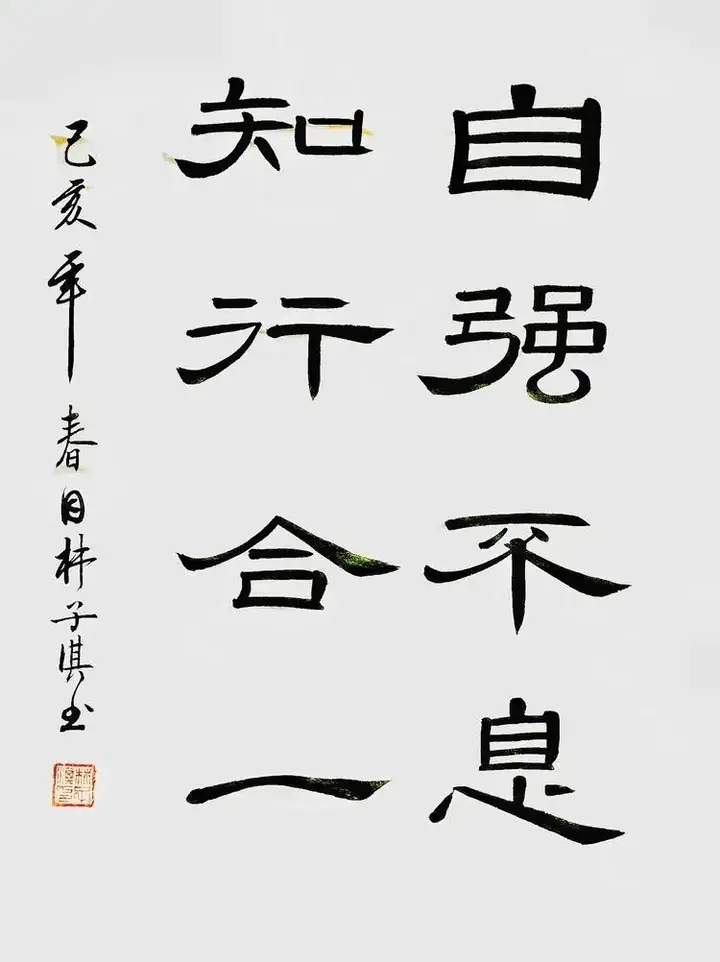 自强不息
知行合一
己亥年春日林子淇书